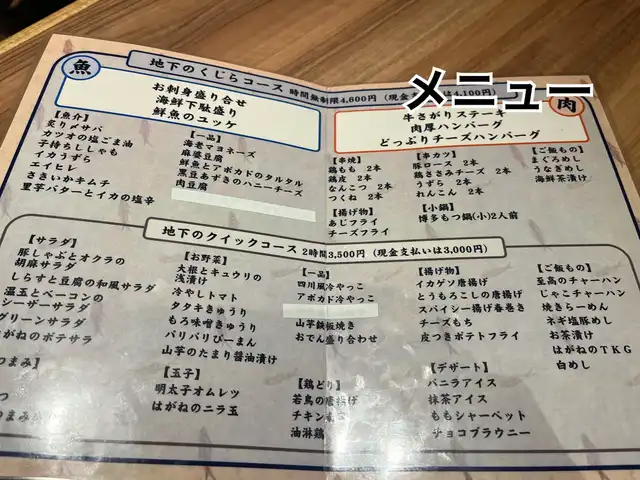 メニュー
魚
地下のくじらコース 時間無制限4,600円(現金 は4,100円)
お刺身盛り合せ
海鮮下駄盛り
鮮魚のユッケ
肉
牛さがりステーキ
肉厚ハンバーグ
どっぷりチーズハンバーグ
【魚介】
炙り〆サバ
カツオの塩ごま油
子持ちししゃも
イカうずら
エイヒレ
さきいかキムチ
里芋バターとイカの塩辛
【一品】
海老マヨネーズ
麻婆豆腐
鮮魚とアボカドのタルタル
黒豆あずきのハニーチーズ
肉豆腐
【串焼】
鶏もも 2本
鶏皮 2本
なんこつ 2本
つくね 2本
【揚げ物】
あじフライ
チーズフライ
【串カツ】
豚ロース 2本
鶏ささみチーズ 2本
うずら 2本
れんこん 2本
【小鍋】
博多もつ鍋(小)2人前
【ご飯もの】
まぐろめし
うなぎめし
海鮮茶漬け
地下のクイックコース 2時間3,500円(現金支払いは3,000円)
【サラダ】
豚しゃぶとオクラの
胡麻サラダ
しらすと豆腐の和風サラダ
温玉とベーコンの
シーザーサラダ
グリーンサラダ
はがねのポテサラ
つまみ】
【お野菜】
大根とキュウリの
浅漬け
冷やしトマト
タタキきゅうり
もろ味噌きゅうり
パリパリぴーまん
山芋のたまり醤油漬け
【玉子】
明太子オムレツ
はがねのニラ玉
【一品】
四川風冷やっこ
アボカド冷やっこ
山芋鉄板焼き
おでん盛り合わせ
【鶏どり】
若鳥の唐揚げ
チキン
油淋鶏
【揚げ物】
イカゲソ唐揚げ
とうもろこしの唐揚げ
スパイシー揚げ春巻き
チーズもち
皮つきポテトフライ
【デザート】
バニラアイス
抹茶アイス
ももシャーベット
チョコブラウニー
【ご飯もの】
至高のチャーハン
じゃこチャーハン
焼きらーめん
ネギ塩豚めし
お茶漬け
はがねのTKG
白めし